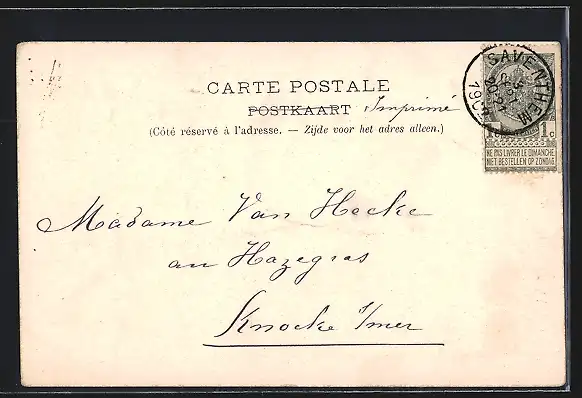 CARTE POSTALE
POSTKAART Imprimé
(Côté réservé à l'adresse. — Zijde voor het adres alleen.)
SAVENTHEM
1c 1c
NE PAS LIVRER LE DIMANCHE
NIET BESTELLEN OP ZONDAG
Madame Van Hecke
au Hazegras
Knocke s/mer